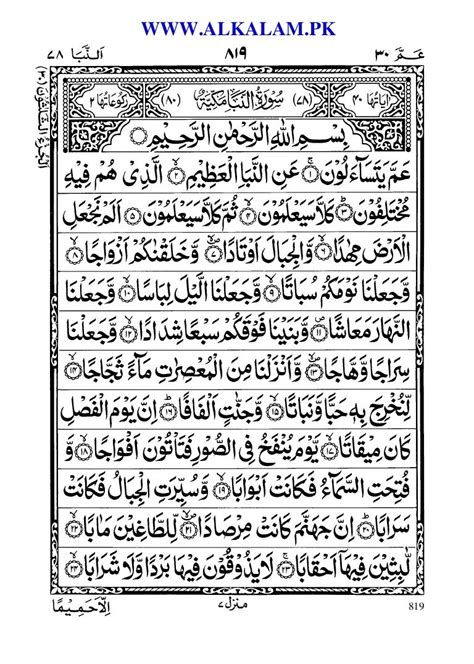 WWW.ALKALAM.PK
عـمّ ٣٠ ٨١٩ اَلنَّبَا ٧٨
اٰیَاتُهَا ٤٠ (٧٨) سُوْرَةُ النَّبَاِ مَكِّيَّةٌ (٨٠) رُكُوْعَاتُهَا ٢
بِسْمِ اللّٰهِ الرَّحْمٰنِ الرَّحِيْمِ
عَمَّ يَتَسَآءَلُوْنَ ١ عَنِ النَّبَاِ الْعَظِيْمِ ٢ الَّذِىْ هُمْ فِيْهِ
مُخْتَلِفُوْنَ ٣ كَلَّا سَيَعْلَمُوْنَ ٤ ثُمَّ كَلَّا سَيَعْلَمُوْنَ ٥ اَلَمْ نَجْعَلِ
الْاَرْضَ مِهٰدًا ٦ وَّالْجِبَالَ اَوْتَادًا ٧ وَّخَلَقْنٰكُمْ اَزْوَاجًا ٨
وَّجَعَلْنَا نَوْمَكُمْ سُبَاتًا ٩ وَّجَعَلْنَا الَّيْلَ لِبَاسًا ١٠ وَّجَعَلْنَا
النَّهَارَ مَعَاشًا ١١ وَّبَنَيْنَا فَوْقَكُمْ سَبْعًا شِدَادًا ١٢ وَّجَعَلْنَا
سِرَاجًا وَّهَّاجًا ١٣ وَّاَنْزَلْنَا مِنَ الْمُعْصِرٰتِ مَآءً ثَجَّاجًا ١٤
لِّنُخْرِجَ بِهٖ حَبًّا وَّنَبَاتًا ١٥ وَّجَنّٰتٍ اَلْفَافًا ١٦ اِنَّ يَوْمَ الْفَصْلِ
كَانَ مِيْقَاتًا ١٧ يَّوْمَ يُنْفَخُ فِى الصُّوْرِ فَتَاْتُوْنَ اَفْوَاجًا ١٨ وَّ
فُتِحَتِ السَّمَآءُ فَكَانَتْ اَبْوَابًا ١٩ وَّسُيِّرَتِ الْجِبَالُ فَكَانَتْ
سَرَابًا ٢٠ اِنَّ جَهَنَّمَ كَانَتْ مِرْصَادًا ٢١ لِّلطَّاغِيْنَ مَاٰبًا ٢٢
لّٰبِثِيْنَ فِيْهَآ اَحْقَابًا ٢٣ لَا يَذُوْقُوْنَ فِيْهَا بَرْدًا وَّلَا شَرَابًا ٢٤
اِلَّا حَمِيْمًا
منزل ٧
819